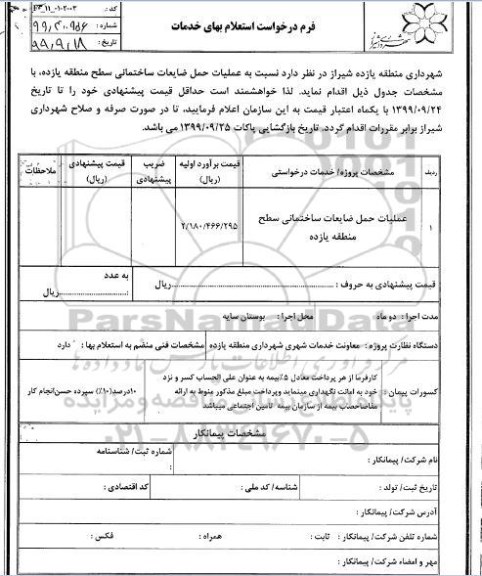 کد: ۰۱-۲۰۰۳-E3_11
فرم درخواست استعلام بهای خدمات
شماره:
تاریخ: ۹۹,۹,۱۸
شهرداری منطقه یازده شیراز در نظر دارد نسبت به عملیات حمل ضایعات ساختمانی سطح منطقه یازده، با
مشخصات جدول ذیل اقدام نماید. لذا خواهشمند است حداقل قیمت پیشنهادی خود را تا تاریخ
۱۳۹۹/۰۹/۲۴ با یکماه اعتبار قیمت به این سازمان اعلام فرمایید، تا در صورت صرفه و صلاح شهرداری
شیراز برابر مقررات اقدام گردد. تاریخ بازگشایی پاکات ۱۳۹۹/۰۹/۲۵ می باشد.
ردیف مشخصات پروژه/ خدمات درخواستی قیمت برآورد اولیه (ریال) ضریب پیشنهادی قیمت پیشنهادی (ریال) ملاحظات
۱ عملیات حمل ضایعات ساختمانی سطح منطقه یازده ۲/۱۸۰/۴۶۶/۲۹۵
قیمت پیشنهادی به حروف : ریال به عدد : ریال
مدت اجرا : دو ماه محل اجرا : بوستان سایه
دستگاه نظارت پروژه : معاونت خدمات شهری شهرداری منطقه یازده مشخصات فنی منضم به استعلام بها : دارد
کسورات پیمان : کارفرما از هر پرداخت معادل ۵٪بیمه به عنوان علی الحساب کسر و نزد
خود به امانت نگهداری مینماید وپرداخت مبلغ مذکور منوط به ارائه
مفاصاحساب بیمه از سازمان بیمه تامین اجتماعی میباشد
۱۰درصد(۱۰٪) سپرده حسن‌انجام کار
ParsNamadData
۰۲۱-۸۸۳۴۹۶۷۰-۵
مشخصات پیمانکار
نام شرکت/ پیمانکار : شماره ثبت/ شناسنامه :
تاریخ ثبت/ تولد : شناسه/ کد ملی : کد اقتصادی :
آدرس شرکت/ پیمانکار :
شماره تلفن شرکت/ پیمانکار : ثابت : همراه : فکس :
مهر و امضاء شرکت/ پیمانکار :